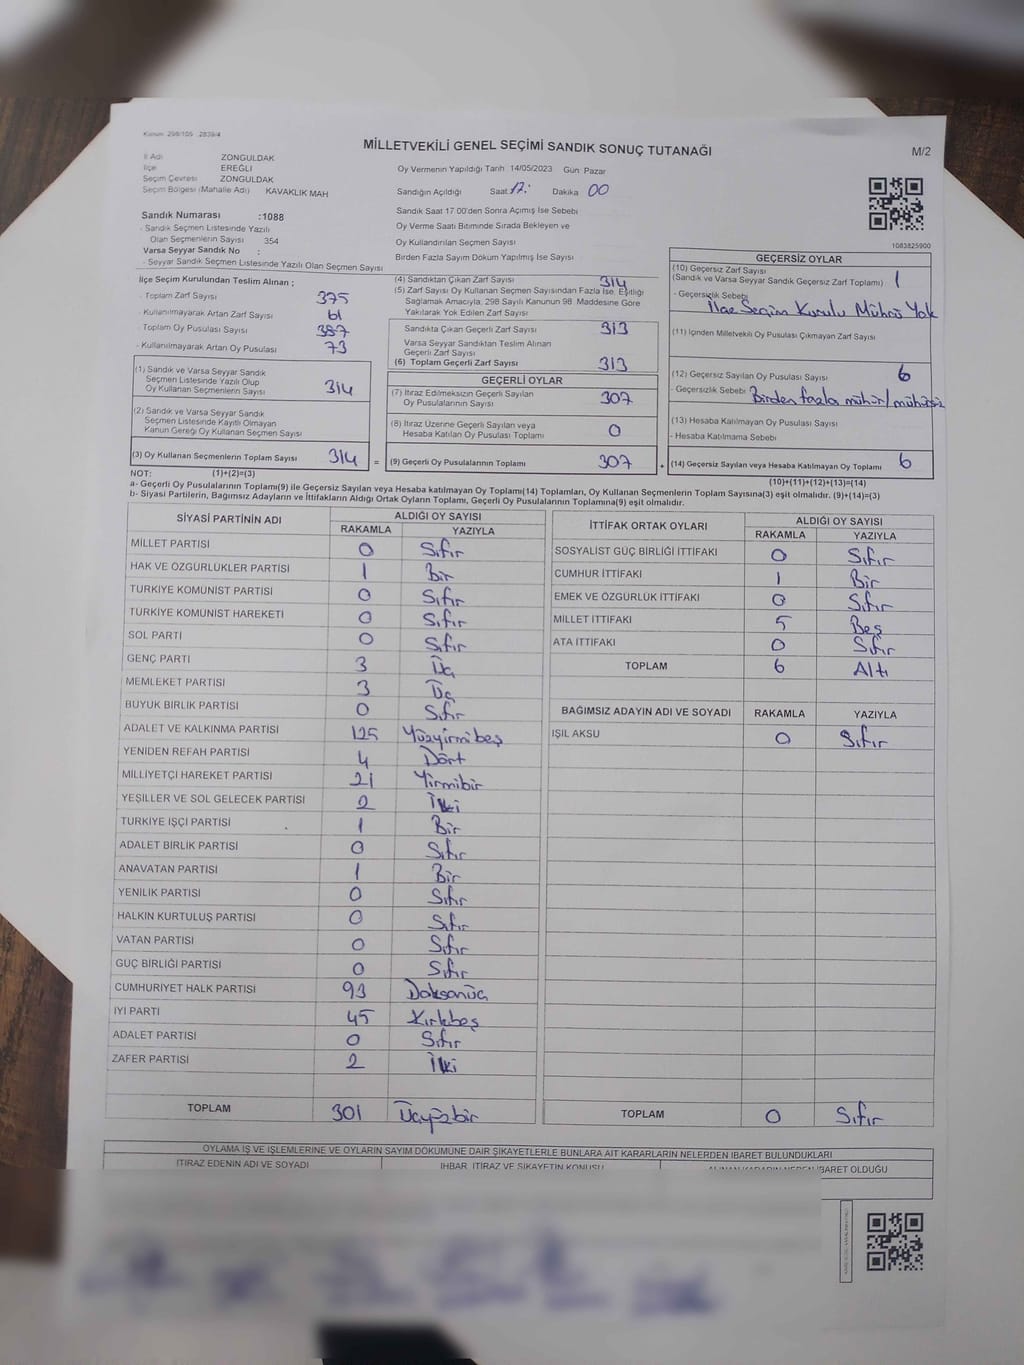 Kanun: 298/105 , 2839/4
MİLLETVEKİLİ GENEL SEÇİMİ SANDIK SONUÇ TUTANAĞI
M/2
İl Adı ZONGULDAK
İlçe EREĞLİ
Seçim Çevresi ZONGULDAK
Seçim Bölgesi (Mahalle Adı) KAVAKLIK MAH
Oy Vermenin Yapıldığı Tarih 14/05/2023 Gün: Pazar
Sandığın Açıldığı Saat 17: Dakika 00
Sandık Numarası :1088
- Sandık Seçmen Listesinde Yazılı
Olan Seçmenlerin Sayısı 354
Varsa Seyyar Sandık No :
- Seyyar Sandık Seçmen Listesinde Yazılı Olan Seçmen Sayısı
Sandık Saat 17.00'den Sonra Açımış İse Sebebi
Oy Verme Saati Bitiminde Sırada Bekleyen ve
Oy Kullandırılan Seçmen Sayısı
Birden Fazla Sayım Döküm Yapılmış İse Sayısı
1083825900
İlçe Seçim Kurulundan Teslim Alınan ;
- Toplam Zarf Sayısı 375
- Kullanılmayarak Artan Zarf Sayısı 61
- Toplam Oy Pusulası Sayısı 387
- Kullanılmayarak Artan Oy Pusulası 73
(1) Sandık ve Varsa Seyyar Sandık
Seçmen Listesinde Yazılı Olup
Oy Kullanan Seçmenlerin Sayısı 314
(2) Sandık ve Varsa Seyyar Sandık
Seçmen Listesinde Kayıtlı Olmayan
Kanun Gereği Oy Kullanan Seçmen Sayısı
(3) Oy Kullanan Seçmenlerin Toplam Sayısı 314 =
(4) Sandıktan Çıkan Zarf Sayısı 314
(5) Zarf Sayısı Oy Kullanan Seçmen Sayısından Fazla İse, Eşitliği
Sağlamak Amacıyla, 298 Sayılı Kanunun 98. Maddesine Göre
Yakılarak Yok Edilen Zarf Sayısı
Sandıkta Çıkan Geçerli Zarf Sayısı 313
Varsa Seyyar Sandıktan Teslim Alınan
Geçerli Zarf Sayısı
(6) Toplam Geçerli Zarf Sayısı 313
GEÇERLİ OYLAR
(7) İtiraz Edilmeksizin Geçerli Sayılan
Oy Pusulalarının Sayısı 307
(8) İtiraz Üzerine Geçerli Sayılan veya
Hesaba Katılan Oy Pusulası Toplamı 0
(9) Geçerli Oy Pusulalarının Toplamı 307 +
GEÇERSİZ OYLAR
(10) Geçersiz Zarf Sayısı
(Sandık ve Varsa Seyyar Sandık Geçersiz Zarf Toplamı) 1
- Geçersizlik Sebebi İlçe Seçim Kurulu Mührü Yok
(11) İçinden Milletvekili Oy Pusulası Çıkmayan Zarf Sayısı
(12) Geçersiz Sayılan Oy Pusulası Sayısı 6
- Geçersizlik Sebebi Birden fazla mühür/mühürsüz
(13) Hesaba Katılmayan Oy Pusulası Sayısı
- Hesaba Katılmama Sebebi
(14) Geçersiz Sayılan veya Hesaba Katılmayan Oy Toplamı 6
NOT: (1)+(2)=(3) (10)+(11)+(12)+(13)=(14)
a- Geçerli Oy Pusulalarının Toplamı(9) ile Geçersiz Sayılan veya Hesaba katılmayan Oy Toplamı(14) Toplamları, Oy Kullanan Seçmenlerin Toplam Sayısına(3) eşit olmalıdır. (9)+(14)=(3)
b- Siyasi Partilerin, Bağımsız Adayların ve İttifakların Aldığı Ortak Oyların Toplamı, Geçerli Oy Pusulalarının Toplamına(9) eşit olmalıdır.
SİYASİ PARTİNİN ADI ALDIĞI OY SAYISI
RAKAMLA YAZIYLA
MİLLET PARTİSİ 0 Sıfır
HAK VE ÖZGÜRLÜKLER PARTİSİ 1 Bir
TÜRKİYE KOMÜNİST PARTİSİ 0 Sıfır
TÜRKİYE KOMÜNİST HAREKETİ 0 Sıfır
SOL PARTİ 0 Sıfır
GENÇ PARTİ 3 Üç
MEMLEKET PARTİSİ 3 Üç
BÜYÜK BİRLİK PARTİSİ 0 Sıfır
ADALET VE KALKINMA PARTİSİ 125 Yüzyirmibeş
YENİDEN REFAH PARTİSİ 4 Dört
MİLLİYETÇİ HAREKET PARTİSİ 21 Yirmibir
YEŞİLLER VE SOL GELECEK PARTİSİ 2 İki
TÜRKİYE İŞÇİ PARTİSİ 1 Bir
ADALET BİRLİK PARTİSİ 0 Sıfır
ANAVATAN PARTİSİ 1 Bir
YENİLİK PARTİSİ 0 Sıfır
HALKIN KURTULUŞ PARTİSİ 0 Sıfır
VATAN PARTİSİ 0 Sıfır
GÜÇ BİRLİĞİ PARTİSİ 0 Sıfır
CUMHURİYET HALK PARTİSİ 93 Doksanüç
İYİ PARTİ 45 Kırkbeş
ADALET PARTİSİ 0 Sıfır
ZAFER PARTİSİ 2 İki
TOPLAM 301 Üçyüzbir
İTTİFAK ORTAK OYLARI ALDIĞI OY SAYISI
RAKAMLA YAZIYLA
SOSYALİST GÜÇ BİRLİĞİ İTTİFAKI 0 Sıfır
CUMHUR İTTİFAKI 1 Bir
EMEK VE ÖZGÜRLÜK İTTİFAKI 0 Sıfır
MİLLET İTTİFAKI 5 Beş
ATA İTTİFAKI 0 Sıfır
TOPLAM 6 Altı
BAĞIMSIZ ADAYIN ADI VE SOYADI RAKAMLA YAZIYLA
IŞIL AKSU 0 Sıfır
TOPLAM 0 Sıfır
OYLAMA İŞ VE İŞLEMLERİNE VE OYLARIN SAYIM DÖKÜMÜNE DAİR ŞİKAYETLERLE BUNLARA AİT KARARLARIN NELERDEN İBARET BULUNDUKLARI
İTİRAZ EDENİN ADI VE SOYADI İHBAR, İTİRAZ VE ŞİKAYETİN KONUSU ALINAN KARARIN NEDEN İBARET OLDUĞU